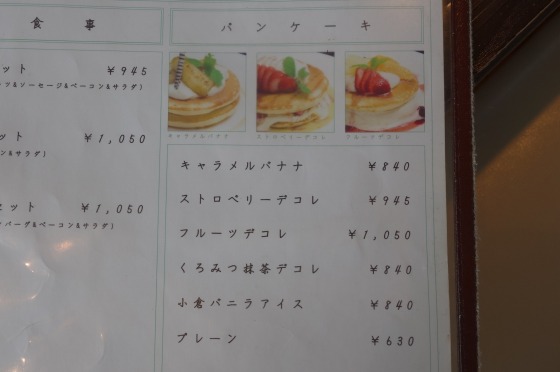 食事
ット ￥945
ツ&ソーセージ&ベーコン&サラダ)
ット ￥1,050
ン&サラダ)
セット ￥1,050
ンバーグ&ベーコン&サラダ)
パンケーキ
キャラメルバナナ ストロベリーデコレ フルーツデコレ
キャラメルバナナ ￥840
ストロベリーデコレ ￥945
フルーツデコレ ￥1,050
くろみつ抹茶デコレ ￥840
小倉バニラアイス ￥840
プレーン ￥630